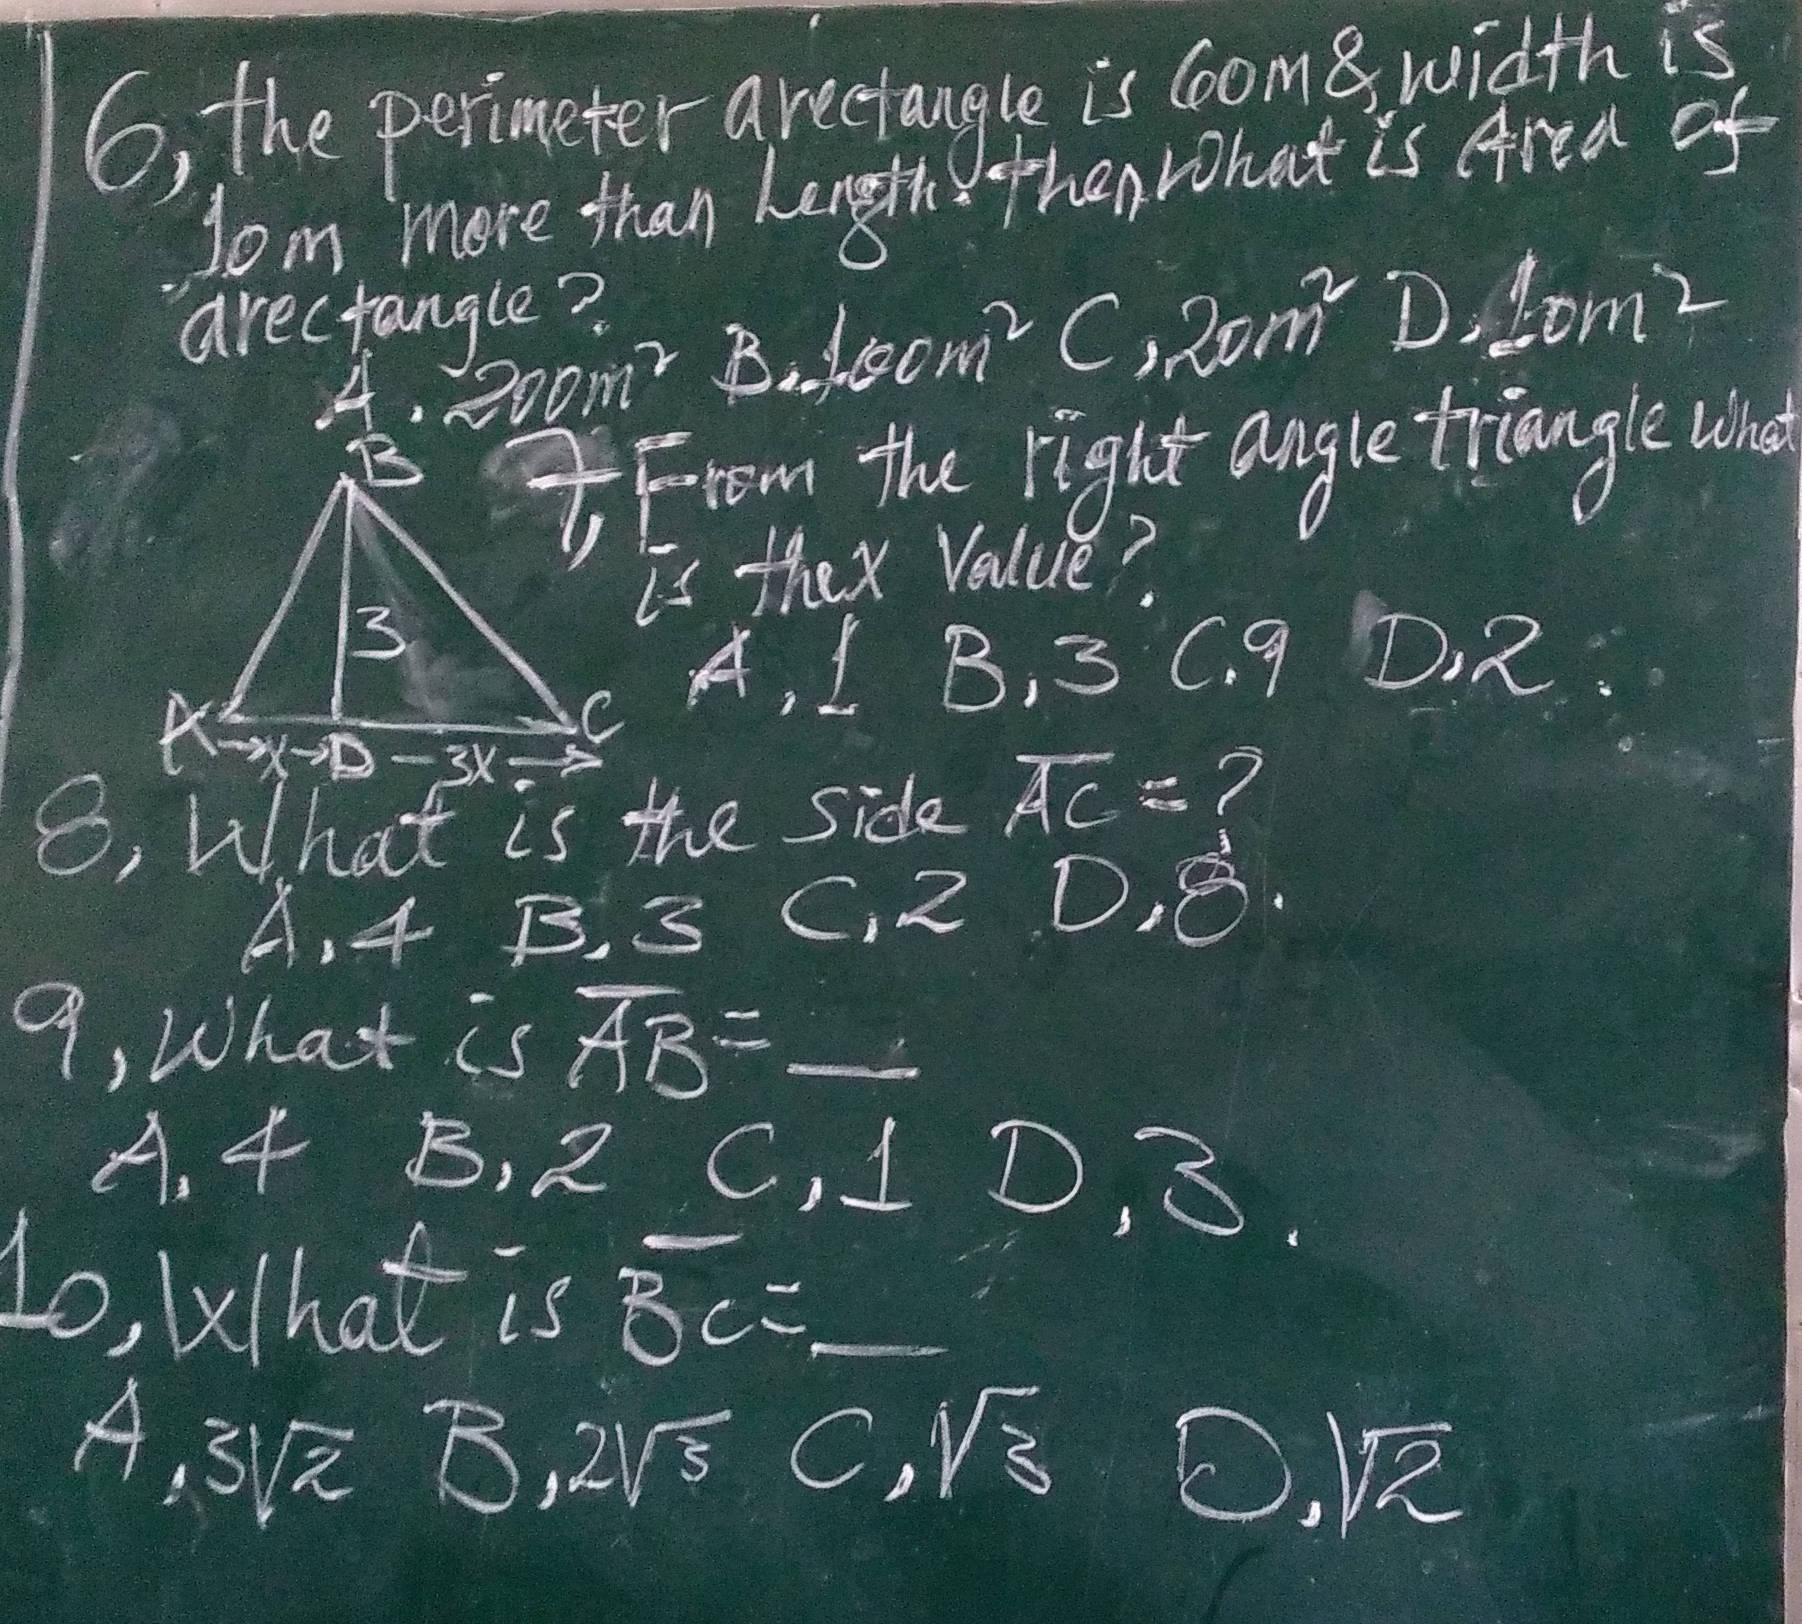 6, the perimeter arectangle is 60m & width is
10m more than Length. then what is Area of
arectangle?
A. 200m² B. 100m² C, 20m² D. 10m²
B
7, From the right angle triangle what
is the x Value?
3
A, 1 B, 3 C. 9 D, 2.
A → x → D - 3x → C
8, What is the side A̅C̅ = ?
A, 4 B. 3 C, 2 D, 8.
9, what is A̅B̅ = __
A. 4 B, 2 C, 1 D, 3.
10, What is B̅C̅ = __
A, 3√2 B, 2√3 C, √3 D. √2